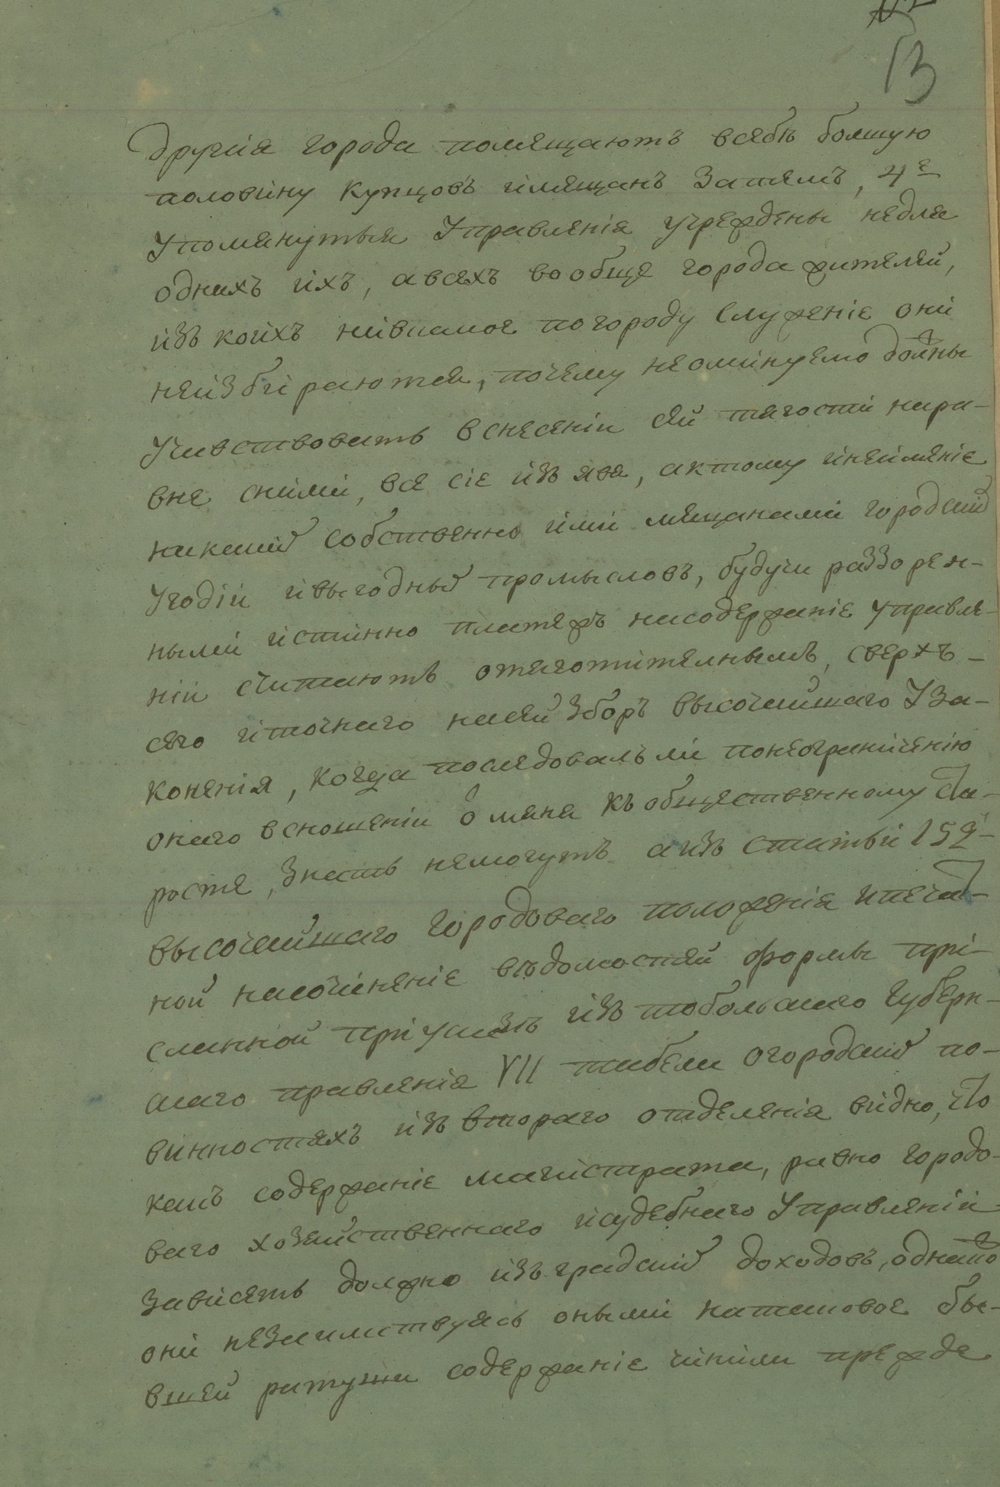 13
другія города помещаютъ всебѣ болшую
половину купцовъ имещанъ Затемъ, 4е
Упомянутыя Управленія учреждены недля
однихъ ихъ, авсехъ вообще города жителей,
изъ коихъ никакое погороду служеніе они
неизбираются, почему неоминуемо должны
Учавствовать вснесеніи сей тягости нара-
вне сними, все сіе изъ явя, актому инеимѣніе
никакий собственно ими мещанами городский
Угодій ивыгодный промысловъ, будучи раззорен-
ными истинно платежъ насодержаніе управле-
ній считаютъ отяготителнымъ, сверхъ-
сего иточнаго насей зборъ высочайшаго Уза-
коненія, когда последовалъ ли понеограниченію
онаго всношеніи о мене къ общественному Ста-
росте, Знать немогутъ аизъ статьи 159й
высочайшаго городоваго положенія ипечат-
ной насочиненіе ведомостей формы при-
сланной приуказѣ изъ тобольскаго Губерн-
скаго правленія VII табели огородский по-
винностяхъ изъ втораго отделенія видно, что
какъ содержаніе магистрата, равно городо-
ваго хозяйственнаго исудебнаго Управленій
зависеть должно изъ градский доходовъ, однако
они незаимствуясь оными натаковое бы-
вшей ратуши содержаніе чинили прежде